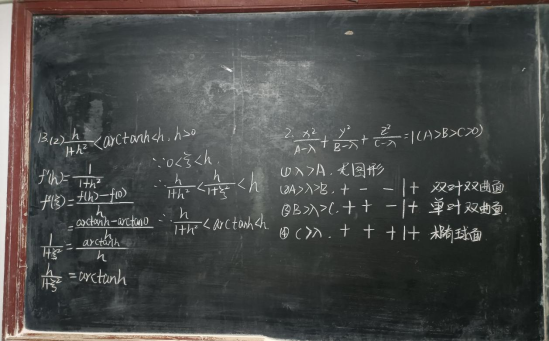 13.(2) h/(1+h²) < arctanh < h, h>0
f'(h) = 1/(1+h²)
f'(ξ) = (f(h)-f(0))/h
= (arctanh-arctan0)/h
1/(1+ξ²) = arctanh/h
h/(1+ξ²) = arctanh
∵ 0<ξ<h
∴ h/(1+h²) < h/(1+ξ²) < h
∴ h/(1+h²) < arctanh < h
2. x²/(A-λ) + y²/(B-λ) + z²/(C-λ) = 1 (A>B>C>0)
① λ>A. 无图形
② A>λ>B. + - - | + 双叶双曲面
③ B>λ>C. + + - | + 单叶双曲面
④ C>λ. + + + | + 椭球面